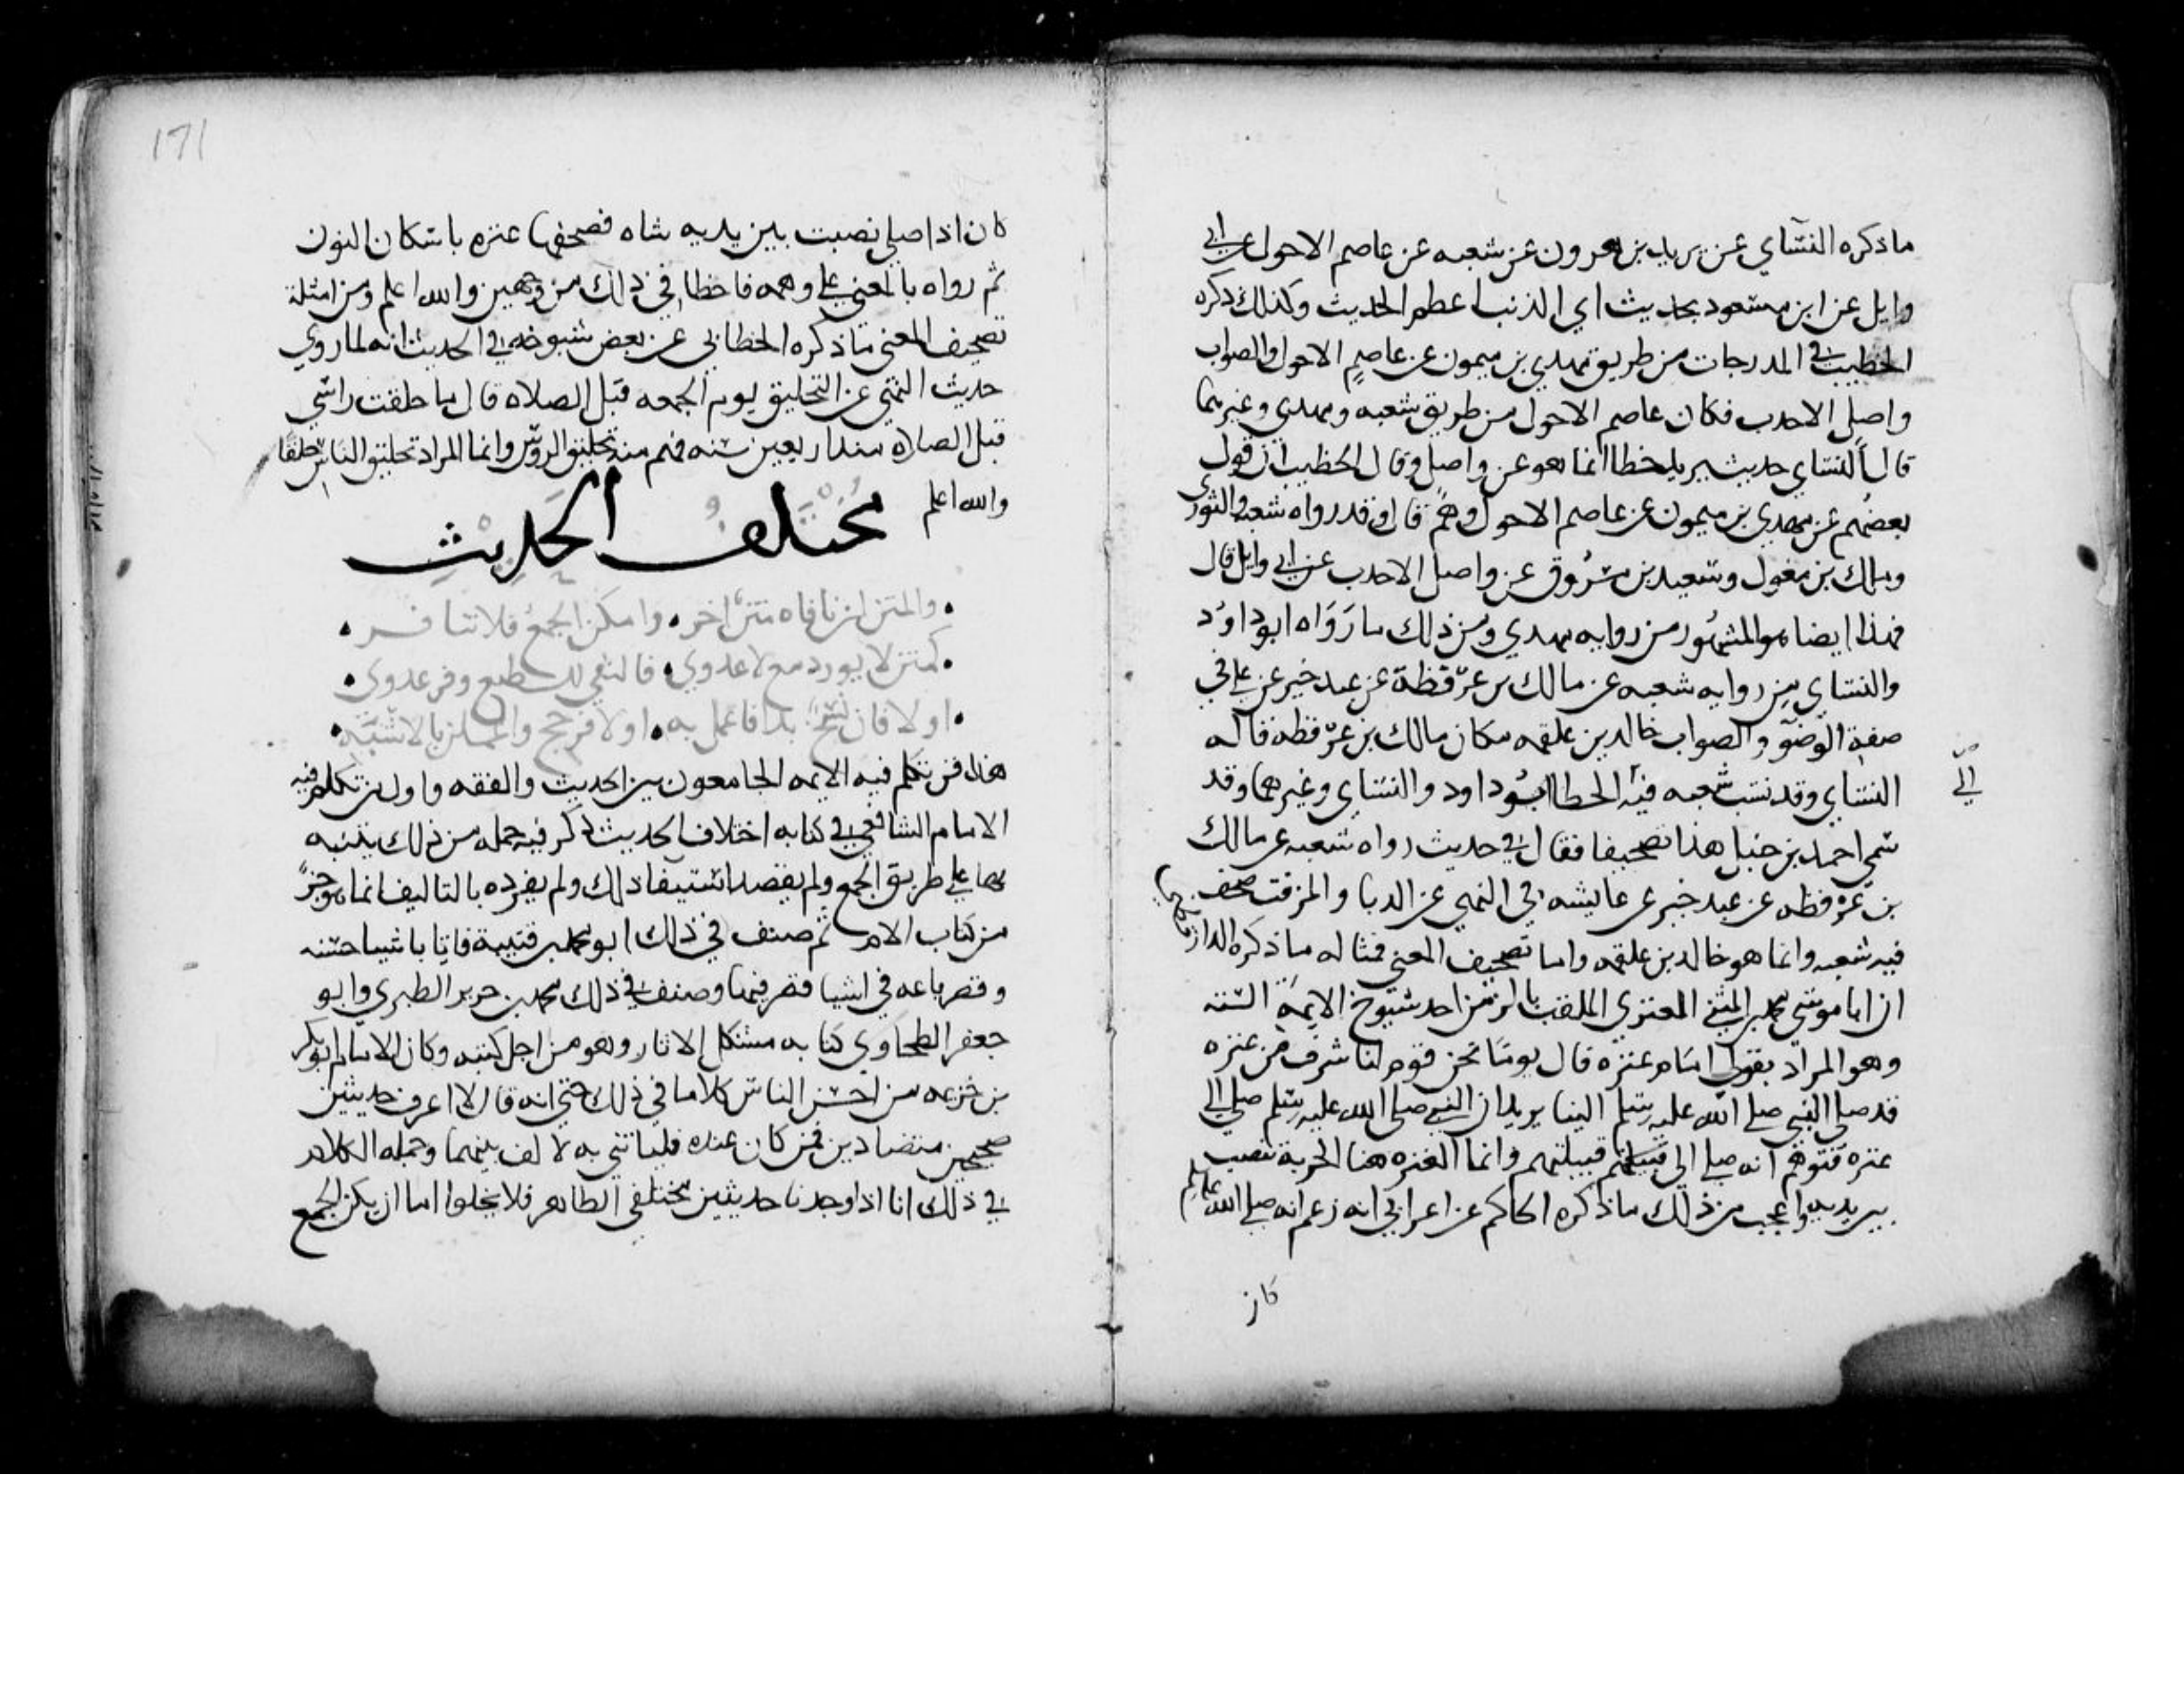 ما ذكره النساي عن يزيد بن هرون عن شعبه عن عاصم الاحول عن ابي
وايل عن ابن مسعود بحديث اي الذنب اعظم الحديث وكذلك ذكره
الخطيب في المدرجات من طريق مهدي بن ميمون عن عاصم الاحول والصواب
واصل الاحدب مكان عاصم الاحول من طريق شعبه ومهدي وغيرهما
قال النساي حديث يزيد خطا انما هو عن واصل وقال الخطيب ان قول
بعضهم عن مهدي بن ميمون عن عاصم الاحول وهم قال وقد رواه شعبه والثوري
ومالك بن مغول وسعيد بن مسروق عن واصل الاحدب عن ابي وايل قال
فهذا ايضا هو المشهور من روايه مهدي ومن ذلك ما رواه ابو داود
والنساي من روايه شعبه عن مالك بن عرفطة عن عبد خير عن علي في
صفة الوضو والصواب خالد بن علقمه مكان مالك بن عرفطه قاله
النساي وقد نسب شعبه فيه الى الخطا ابو داود والنساي وغيرهما وقد
سمى احمد بن حنبل هذا تصحيفا فقال في حديث رواه شعبه عن مالك
بن عرفطه عن عبد خير عن عايشه في النهي عن الدبا والمزفت صحف
فيه شعبه وانما هو خالد بن علقمه واما تصحيف المعنى فمثاله ما ذكره الدارقطني
ان ابا موسى محمد بن المثنى العنزي الملقب بالزمن احد شيوخ الايمة الستة
وهو المراد بقولي امام عنزه قال يوما نحن قوم لنا شرف نحن من عنزه
قد صلى النبي صلى الله عليه وسلم الينا يريد ان النبي صلى الله عليه وسلم صلى الى
عنزه فتوهم انه صلى الى قبيلتهم وانما العنزه هنا الحربة تنصب
بين يديه واعجب من ذلك ما ذكره الحاكم عن اعرابي انه زعم انه صلى الله عليه وسلم
كان
171
كان اذا صلى نصبت بين يديه شاه فصحفها عنزه باسكان النون
ثم رواه بالمعنى على وهمه فاخطا في ذلك من وجهين والله اعلم ومن امثلة
تصحيف المعنى ما ذكره الخطابي عن بعض شيوخه في الحديث انه لما روي
حديث النهي عن التحليق يوم الجمعه قبل الصلاه قال ما حلقت راسي
قبل الصلاه منذ اربعين سنه فهم منه تحليق الروس وانما المراد تحليق الناس حلقا
والله اعلم
مُخْتَلِفُ الحَدِيْثِ
والمتن ان نافاه متن اخر • وامكن الجمع فلا تنافر
كمتن لا يورد مع لا عدوى • فالنفي للطبع وفر عدوى
او لا فان نسخ بدا فاعمل به • او لا فرجح واعملن بالاشبه
هذا فن تكلم فيه الايمه الجامعون بين الحديث والفقه واول من تكلم فيه
الامام الشافعي في كتابه اختلاف الحديث ذكر فيه جمله من ذلك يتنبه
بها على طريق الجمع ولم يقصد استيفا ذلك ولم يفرده بالتاليف انما هو جزء
من كتاب الام ثم صنف في ذلك ابو محمد بن قتيبة فاتى باشيا حسنه
وقصر باعه في اشيا قصر فيها وصنف في ذلك محمد بن جرير الطبري وابو
جعفر الطحاوي كتابه مشكل الاثار وهو من اجل كتبه وكان الامام ابو بكر
بن خزيمه من احسن الناس كلاما في ذلك حتى انه قال لا اعرف حديثين
صحيحين متضادين فمن كان عنده فلياتني به لالف بينهما وجمله الكلام
في ذلك انا اذا وجدنا حديثين مختلفي الظاهر فلا يخلوا اما ان يمكن الجمع